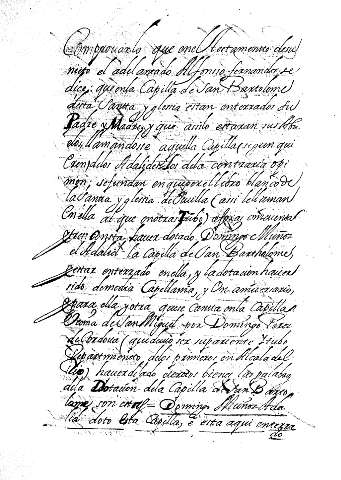 Comprouarlo que en el testamento deue
nito el adelantado Alfonso fernandez se
dice, que en la Capilla de San Bartolome
desta Santa yglesia estan enterrados su
Padre y Madre, y que asilo estaran sus Abu
los, llamandose aquella Capilla,
Los de la contraria opi
nion, se fundan en que por el libro blanco de
la Santa yglesia de Seuilla (asi le llaman
en ella al que en otras Tumbo)
consta, hauer dotado, Domingo Muñoz
el Adalid la Capilla de San Bartholome,
y estar enterrado en ella, y la dotacion hauer
sido de media Capellania, y Un aniuersario,
para ella y otra, que consta en la Capilla
de San Miguel por Domingo Perez
de Cordoua (que dice ser su pariente y tubo
Repartimiento, de los primeros en Alcala del
Rio) hauer dado ciertos bienes las palabras
de la Dotacion de la Capilla de San Barto
lome, son estas = Domingo Muñoz Ada
lid doto esta Capilla, e esta aqui enterra
do